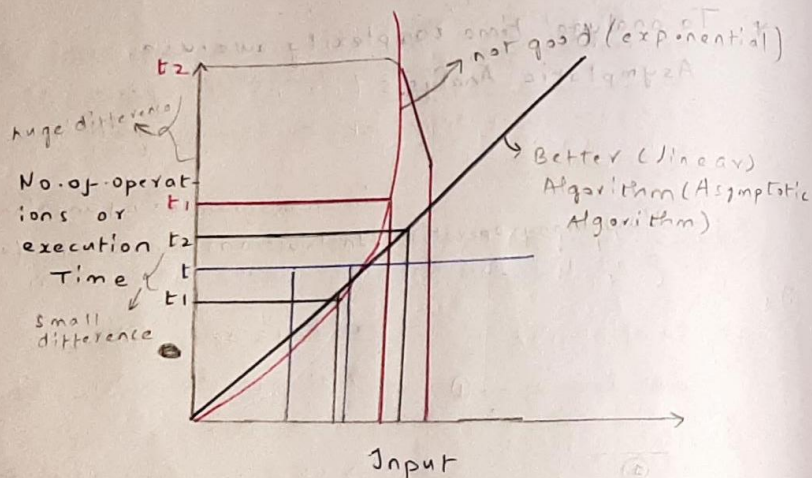 t2
not good (exponential)
huge difference
Better (linear)
Algorithm (Asymptotic
Algorithm)
No. of. operat-
ions or
execution
Time
t1
t2
t
t1
small
difference
Input